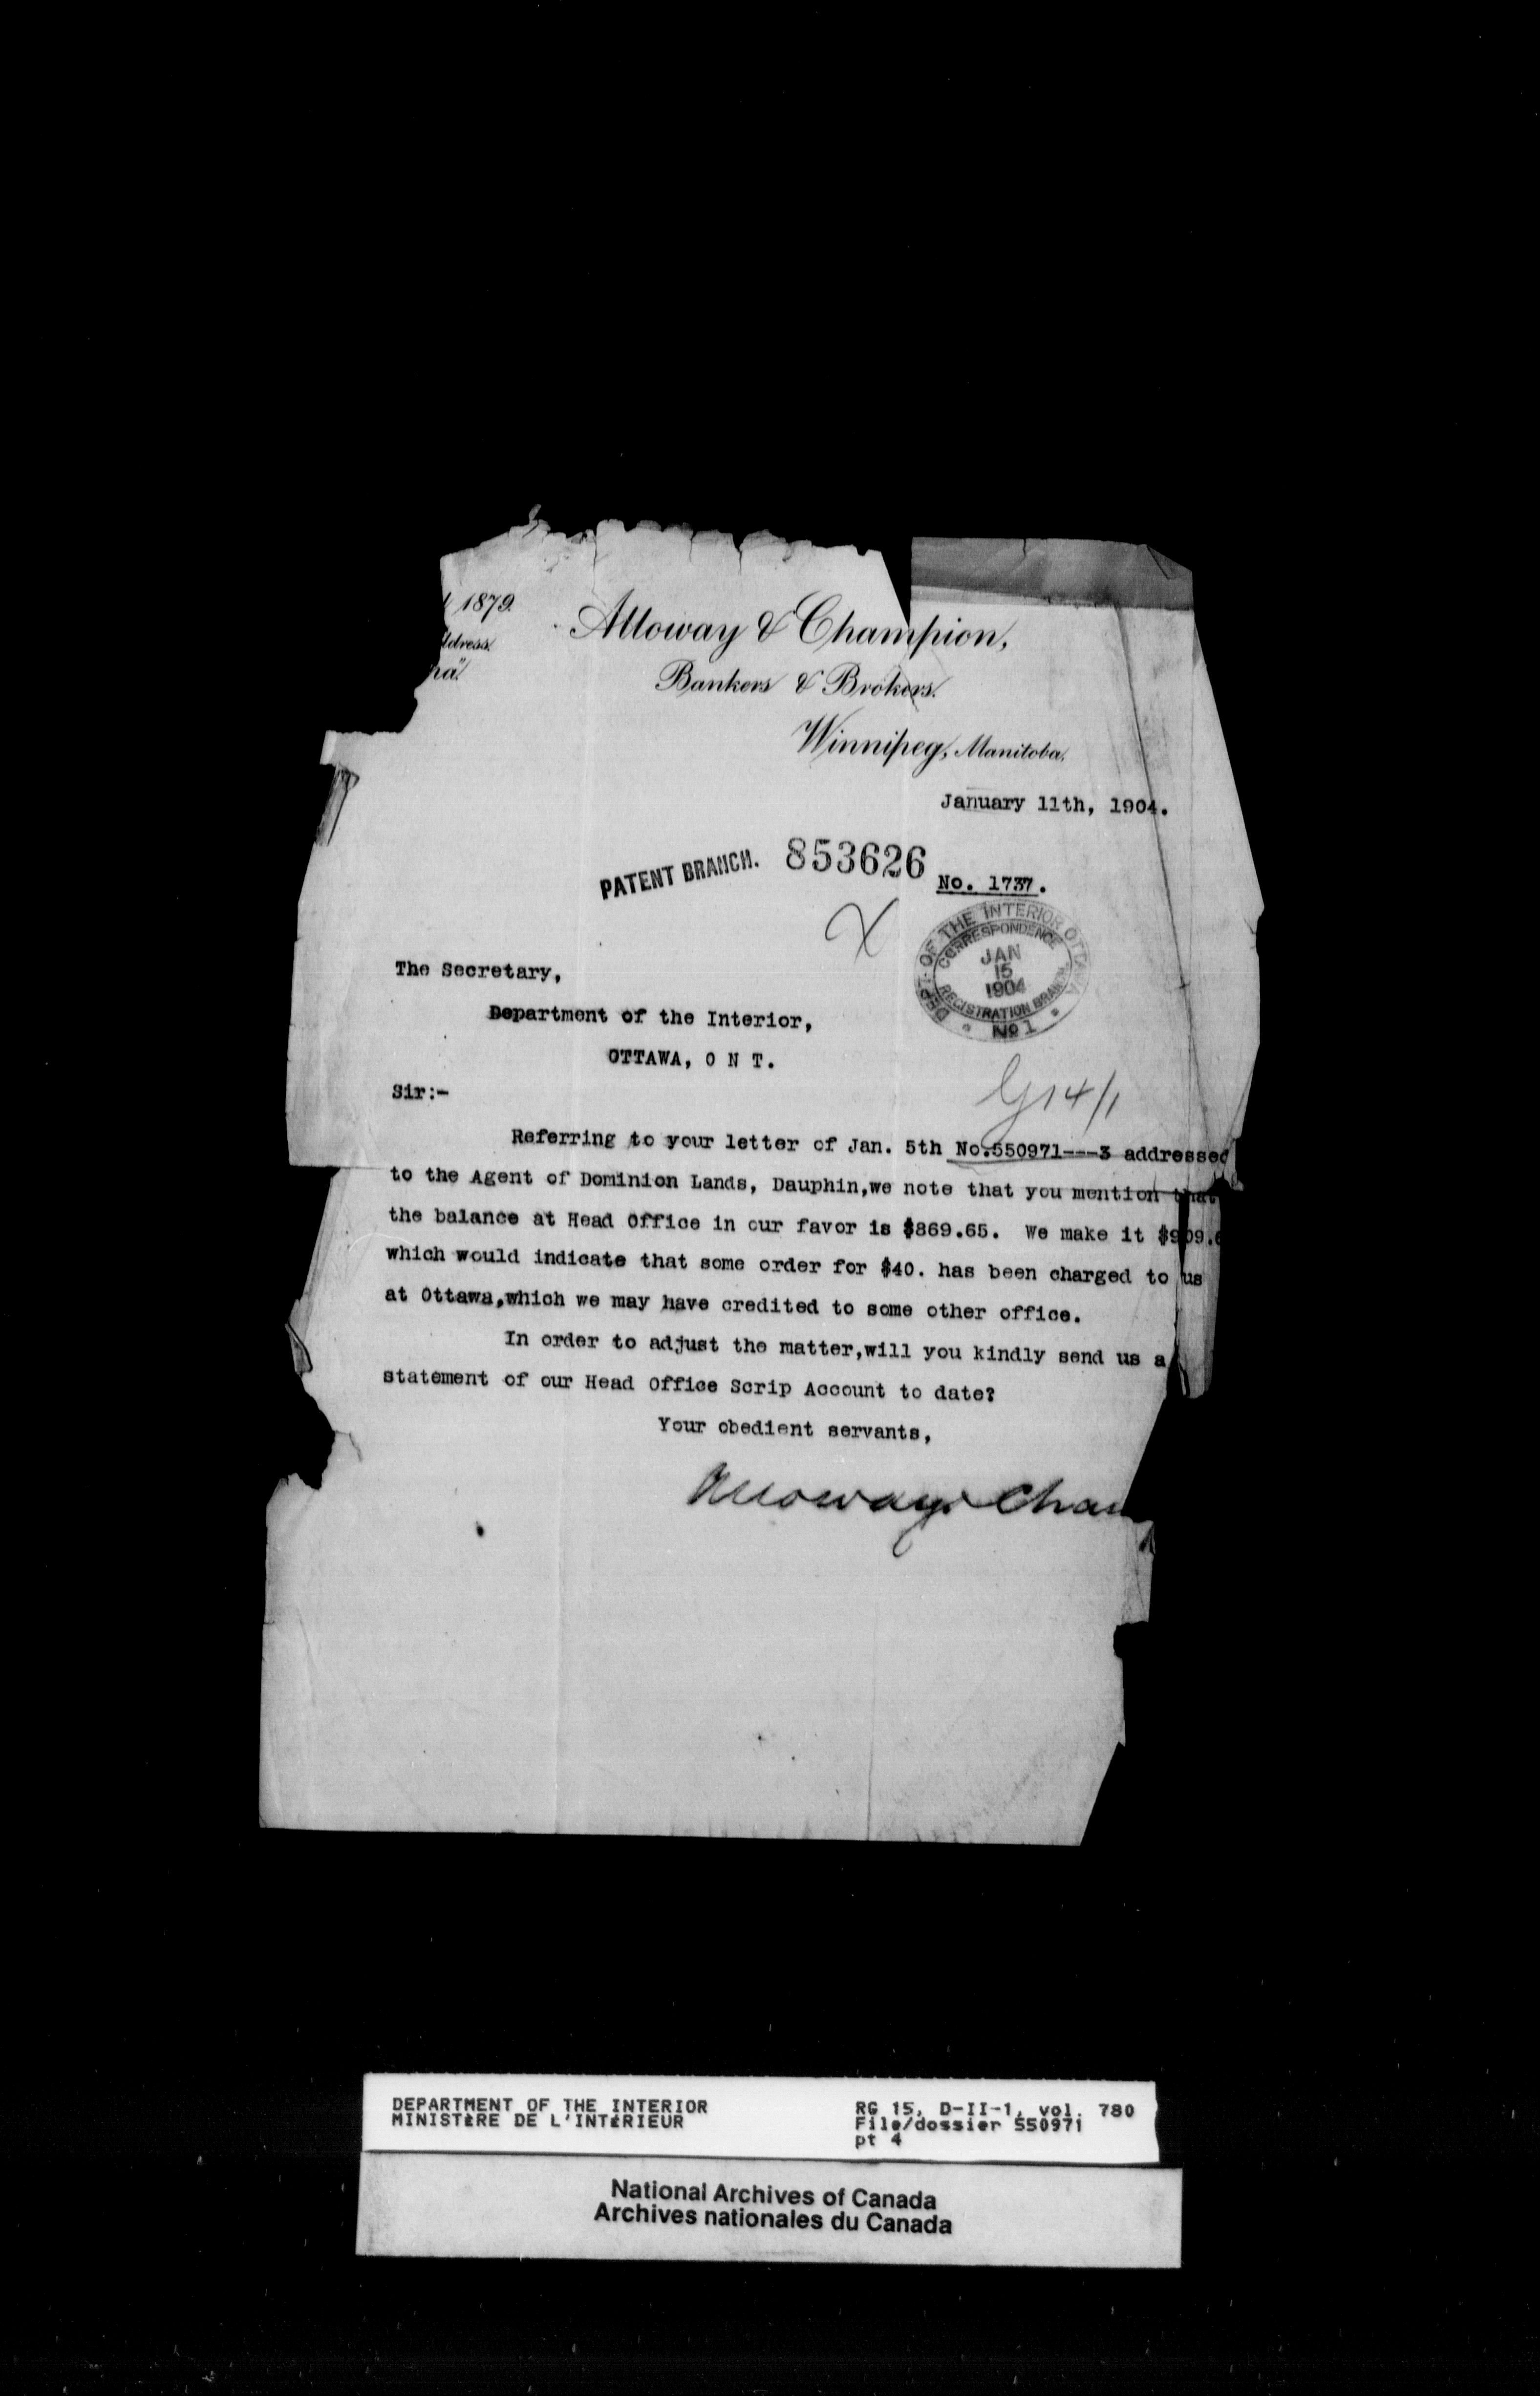 1879.
Alloway & Champion,
Bankers & Brokers.
Winnipeg, Manitoba,
January 11th, 1904.
PATENT BRANCH. 853626
No. 1737.
X
DEPT. OF THE INTERIOR OTTAWA
CORRESPONDENCE
JAN
15
1904
REGISTRATION BRANCH
No 1
The Secretary,
Department of the Interior,
OTTAWA, O N T.
Sir:-
Referring to your letter of Jan. 5th No.550971---3 addressed
to the Agent of Dominion Lands, Dauphin,we note that you mention that
the balance at Head Office in our favor is $869.65. We make it $909.6
which would indicate that some order for $40. has been charged to us
at Ottawa,which we may have credited to some other office.
In order to adjust the matter,will you kindly send us a
statement of our Head Office Scrip Account to date?
Your obedient servants,
Alloway & Cham
DEPARTMENT OF THE INTERIOR
MINISTÈRE DE L'INTÉRIEUR
RG 15, D-II-1, vol. 780
File/dossier 550971
pt 4
National Archives of Canada
Archives nationales du Canada